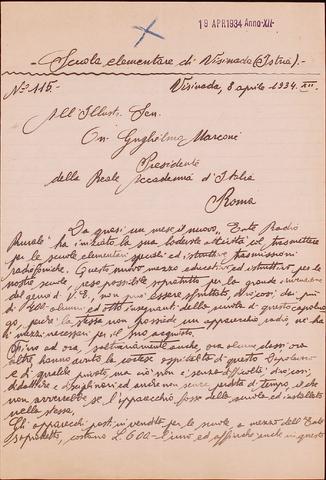 19 APR 1934 Anno XII
Scuola elementare di Visinada (Istria).
N° 115. Visinada, 8 aprile 1934. XII.
All'Illustr. Sen.
On. Guglielmo Marconi
Presidente
della Reale Accademia d'Italia
Roma
Da quasi un mese il nuovo "Ente Radio
Rurale" ha iniziato la sua lodevole attività col trasmettere
per le scuole elementari speciali ed istruttive trasmissioni
radiofoniche. Questo nuovo mezzo educativo ed istruttivo per le
nostre scuole, reso possibile soprattutto per la grande invenzione
del genio di V. E., non può essere sfruttato, dico così dai più
di 400 alunni ed otto insegnanti della scuola di questo capoluo-
go, perchè la stessa non possiede un apparecchio radio, nè ha
i mezzi necessari per il suo acquisto.
Fino ad ora, saltuariamente anche, ora alunni dessi ora
altre hanno avuto la cortese ospitalità di questo Dopolavoro
e di qualche privato, ma ciò non è senza difficoltà, dico così,
didattiche e disciplinari ed anche non senza perdita di tempo, il che
non avverrebbe se l'apparecchio fosse della scuola ed installato
nella stessa.
Gli apparecchi posti in vendita per le scuole a mezzo dell'Ente
sopradetto, costano L. 600 l'uno ed affinchè anche in questo